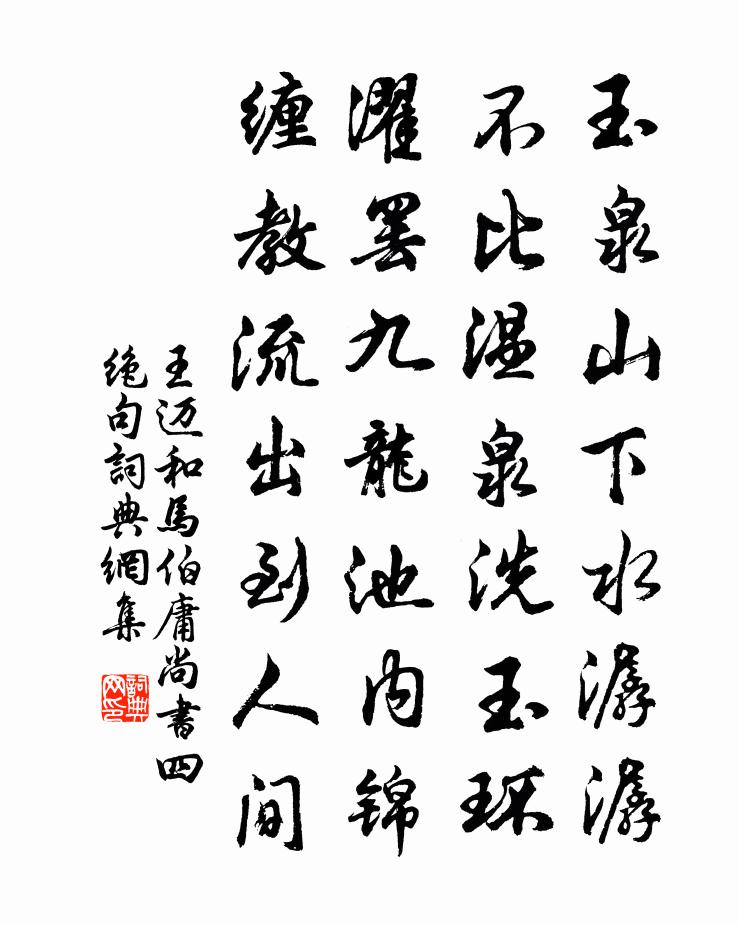 玉泉山下水潺潺
不比温泉洗玉环
濯罢九龍池内锦
缠教流出到人间
王迈和馬伯庸尚書四
绝句詞典網集
詞典
网印